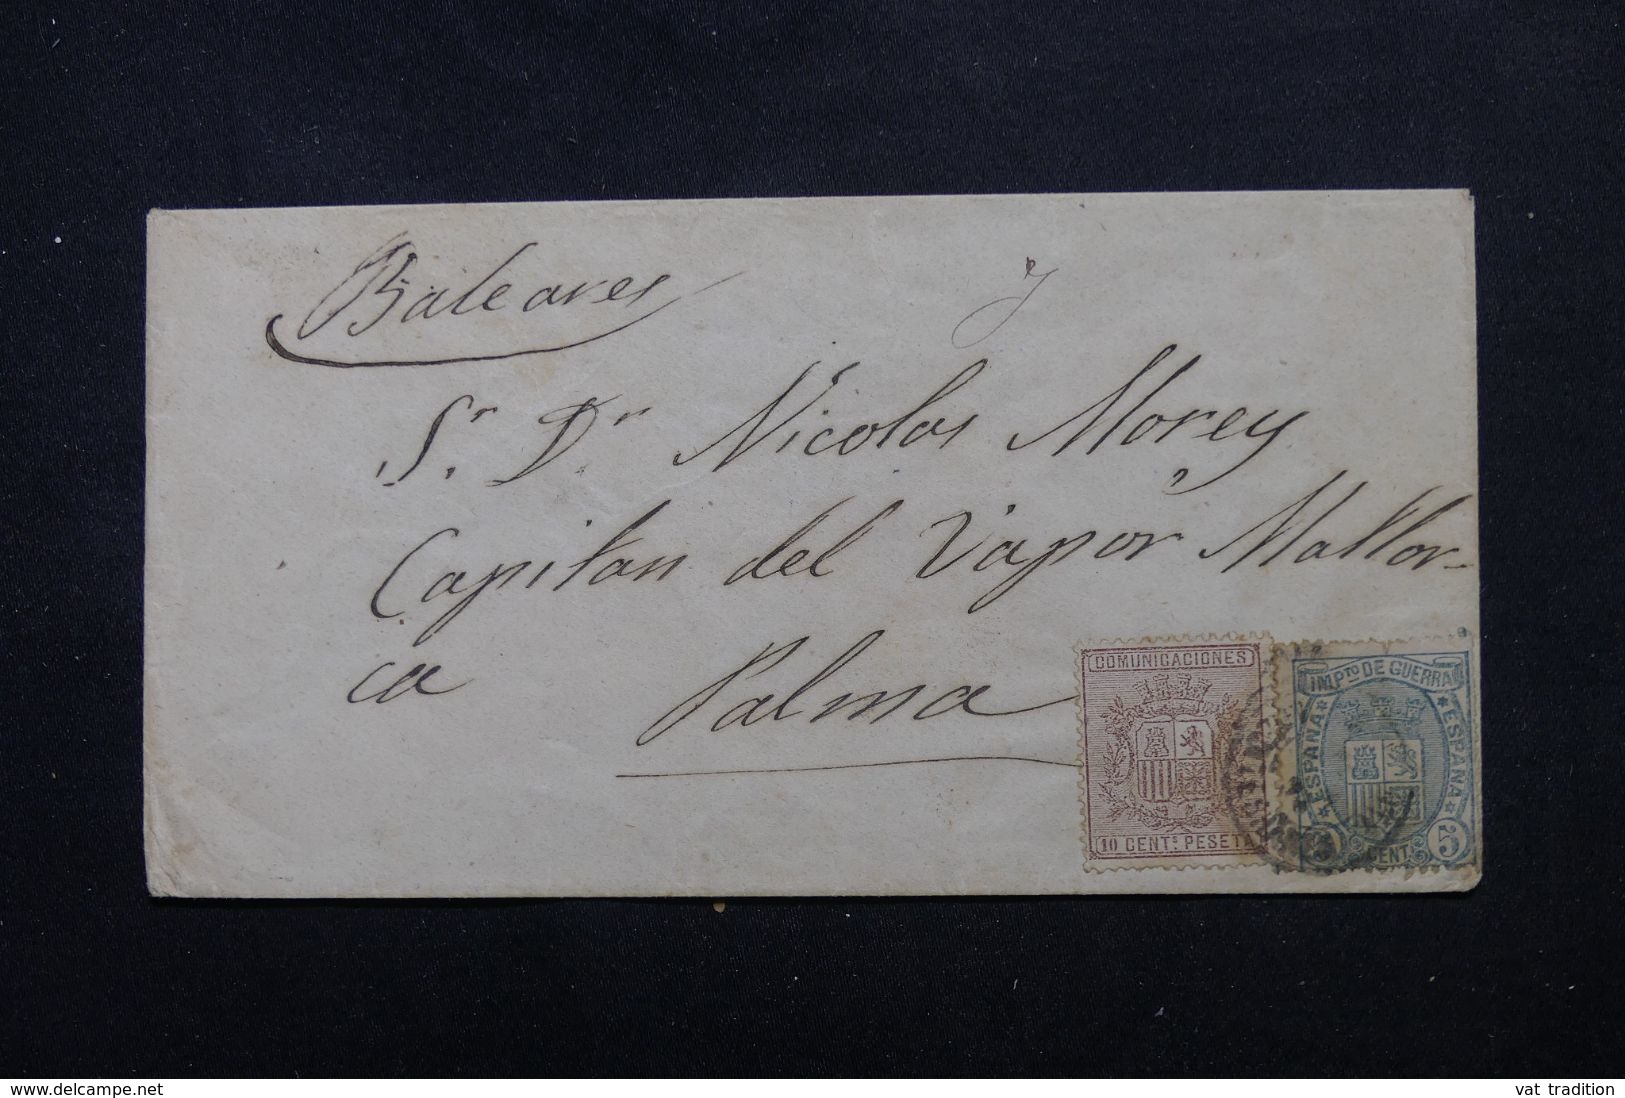 Baleares
y
Sr. Dr. Nicolas Morey
Capitan del Vapor Mallor-
ca
Palma
COMUNICACIONES
10 CENTS PESETA
IMPTO DE GUERRA
ESPAÑA
ESPAÑA
5 CENT. 5
www.delcampe.net
vat_tradition